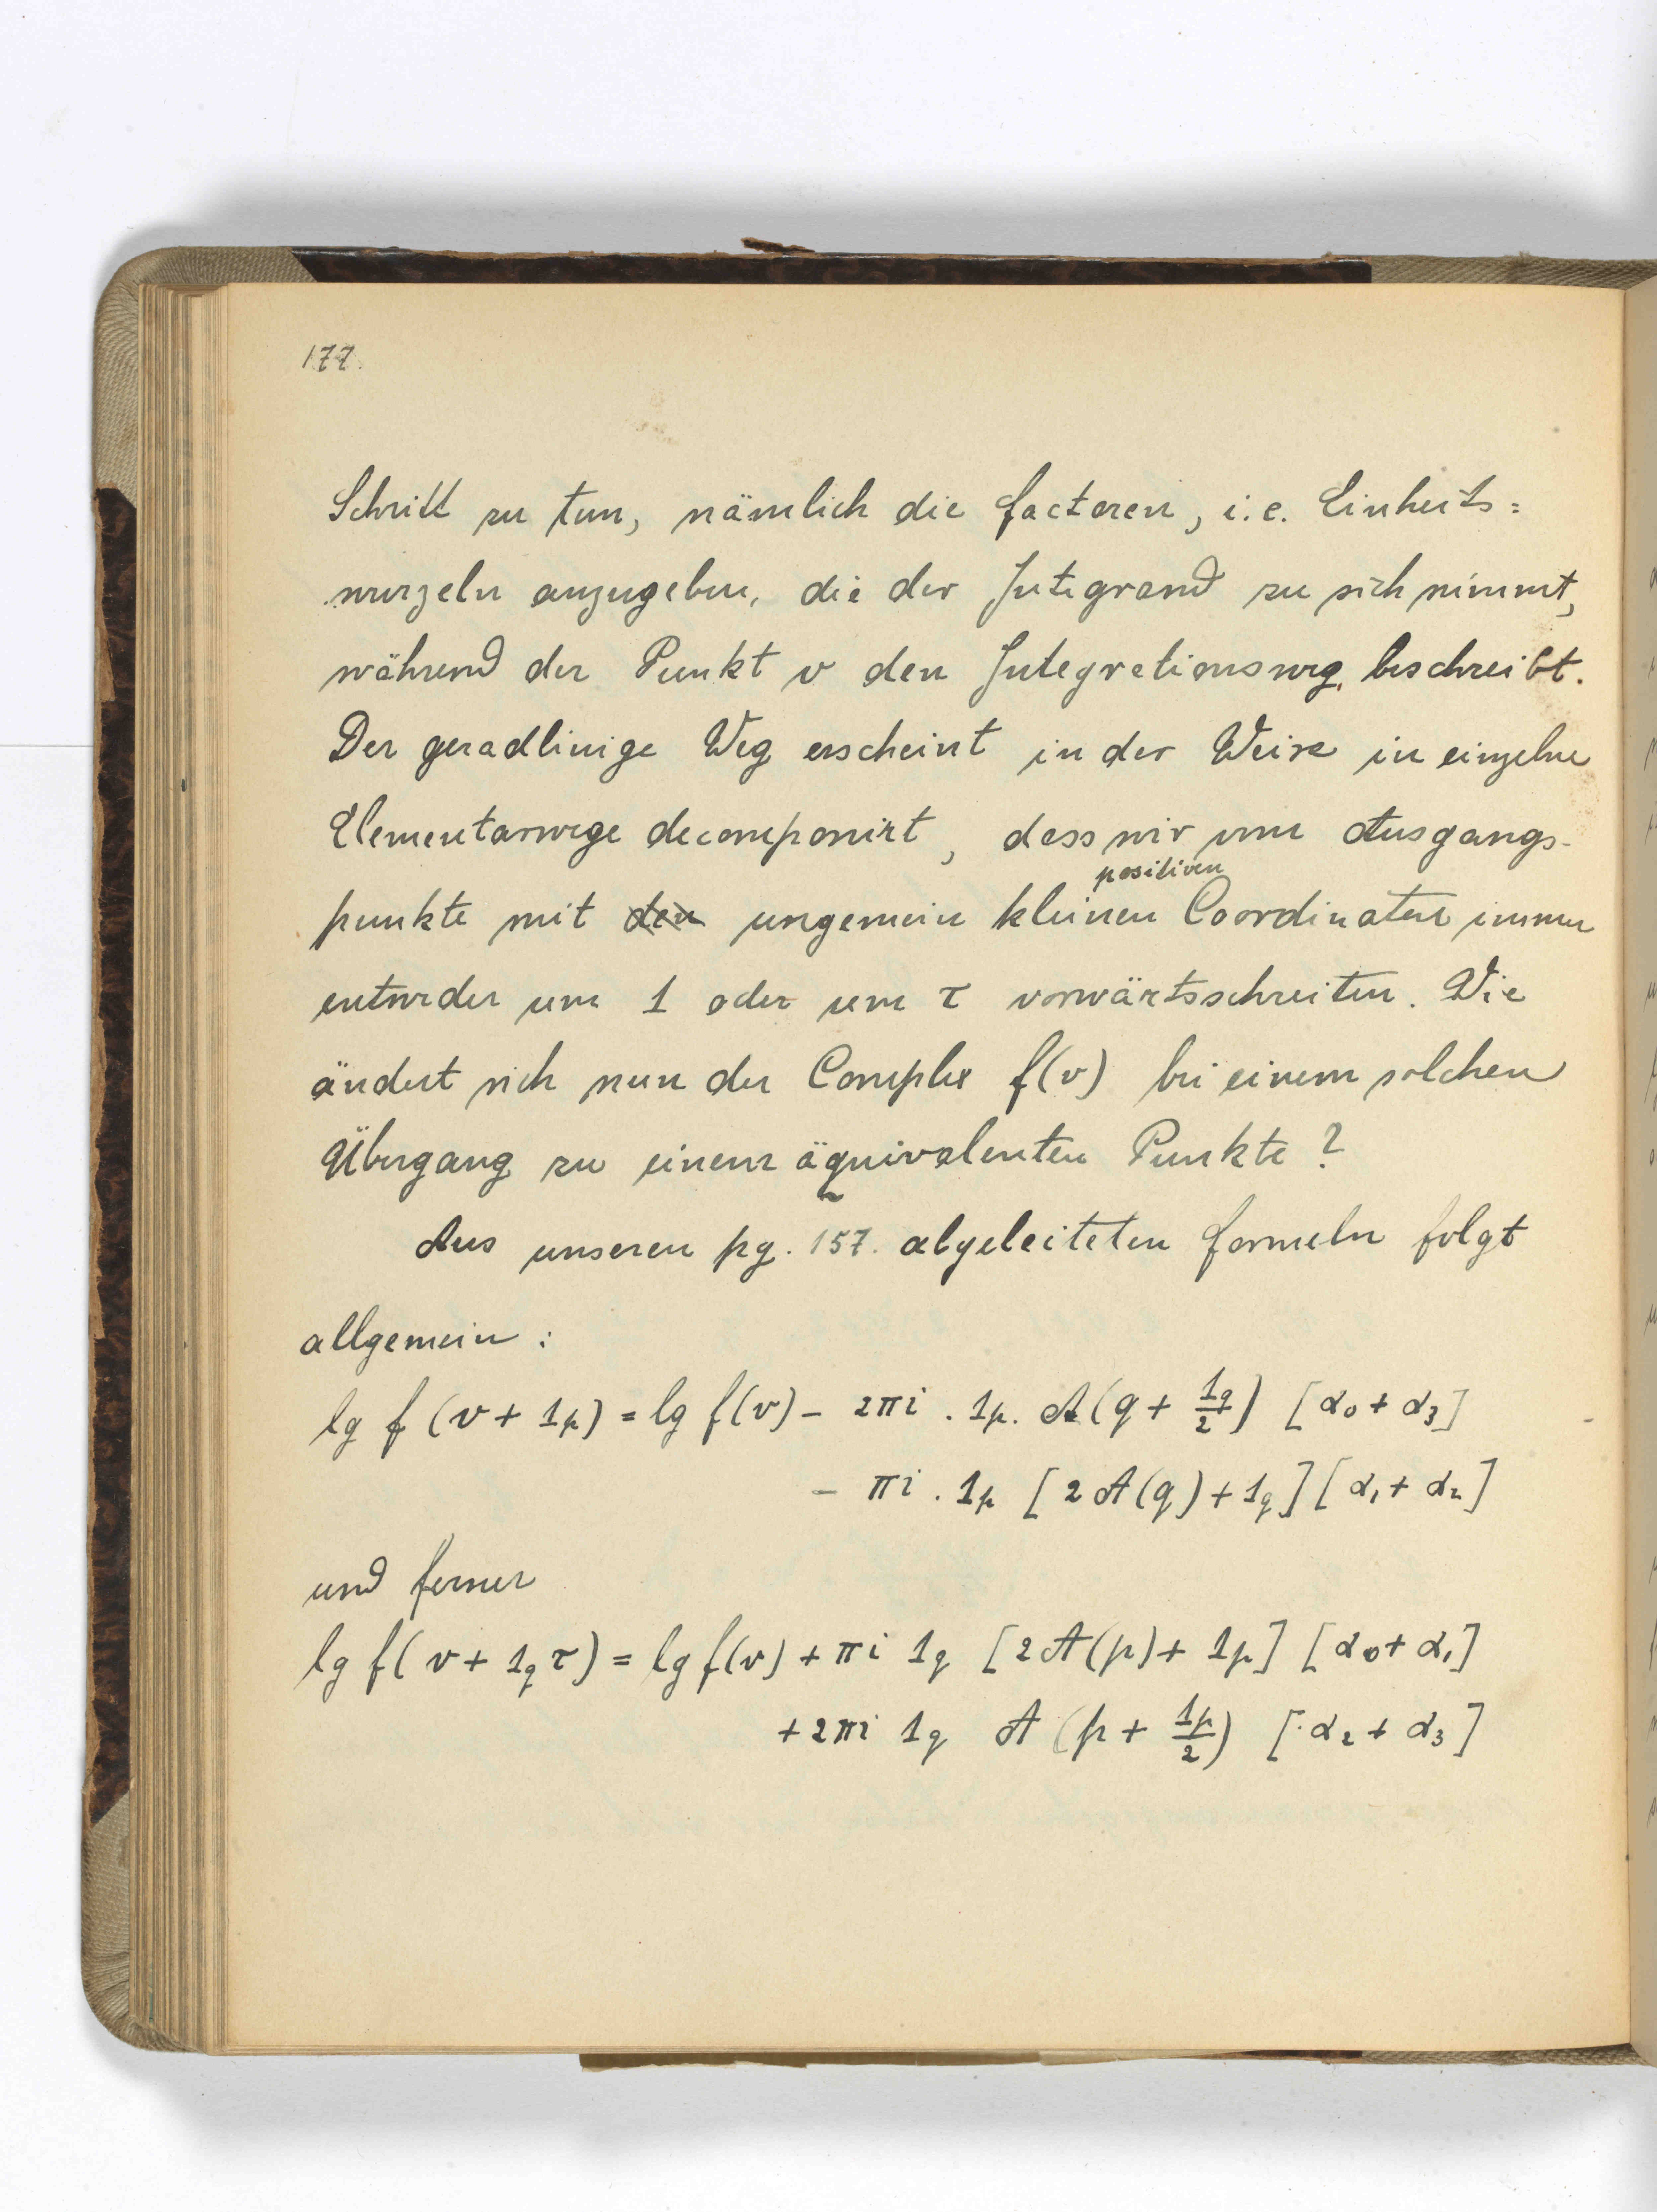 177.
Schritt zu tun, nämlich die Factoren, i.e. Einheits=
wurzeln anzugeben, die der Integrand zu sich nimmt,
während der Punkt v den Integrationsweg beschreibt.
Der geradlinige Weg erscheint in der Weise in einzelne
Elementarwege decomponirt, dass wir vom Ausgangs-
positiven
punkte mit den ungemein kleinen Coordinaten immer
entweder um 1 oder um τ vorwärtsschreiten. Wie
ändert sich nun der Complex f(v) bei einem solchen
Übergang zu einem äquivalenten Punkte?
Aus unseren pg. 157. abgeleiteten Formeln folgt
allgemein:
lg f (v + 1p) = lg f(v) – 2πi . 1p. A(q + 1q/2) [α0 + α3]
– πi . 1p [2 A(q) + 1q] [α1 + α2]
und ferner
lg f( v + 1q τ) = lg f(v) + πi 1q [2 A(p) + 1p] [α0 + α1]
+ 2πi 1q A (p + 1p/2) [α2 + α3]